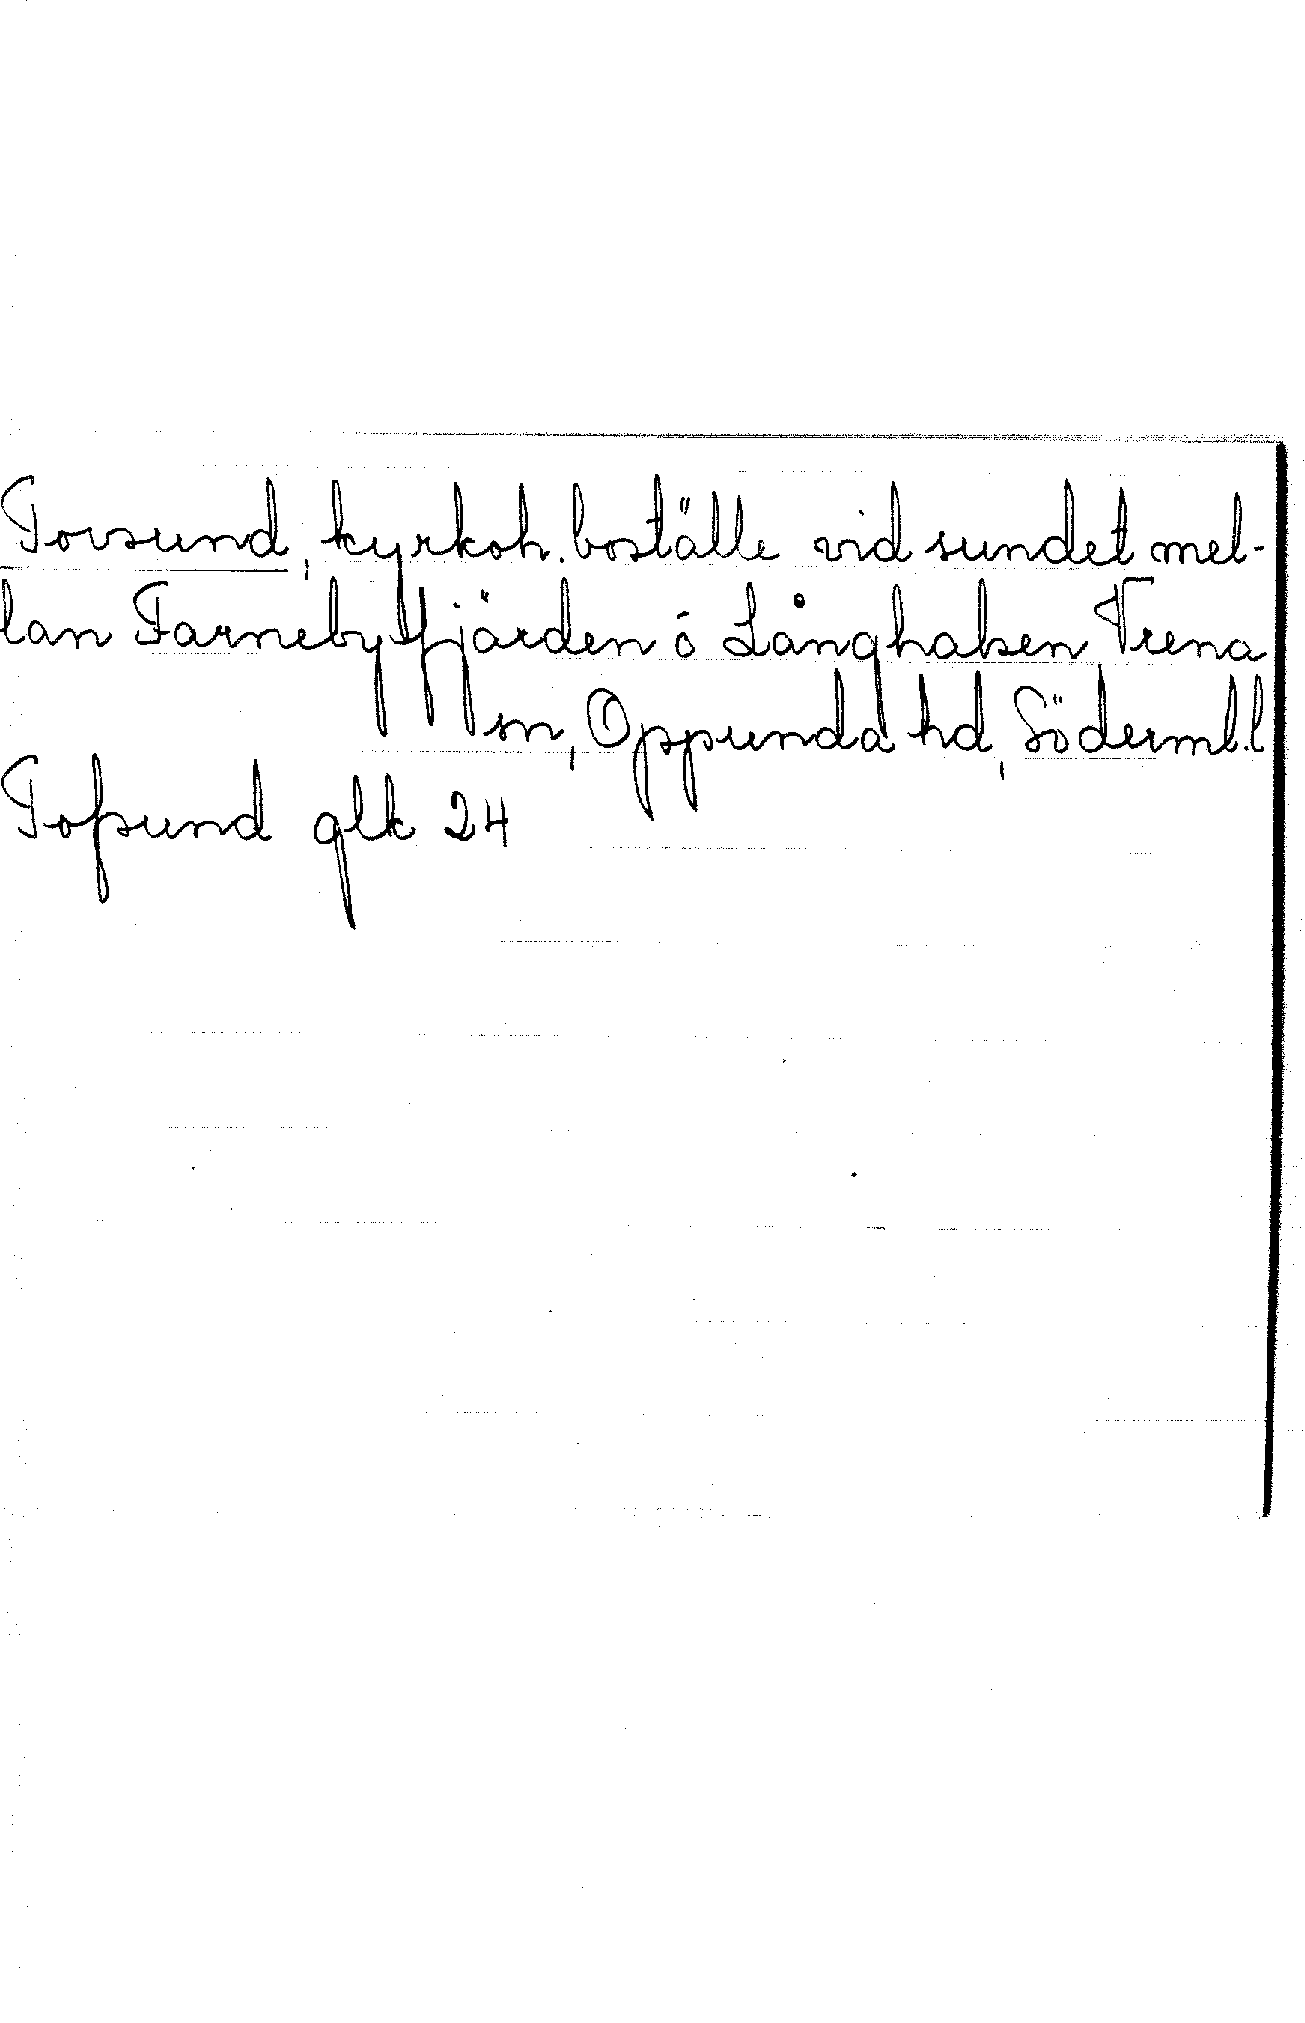 Tovsund, kyrkoh. boställe vid sundet mel-
lan Farnebyfjärden ó Långhalsen Vrena
sn, Oppunda hd, Söderml. l
Tofsund glk 24